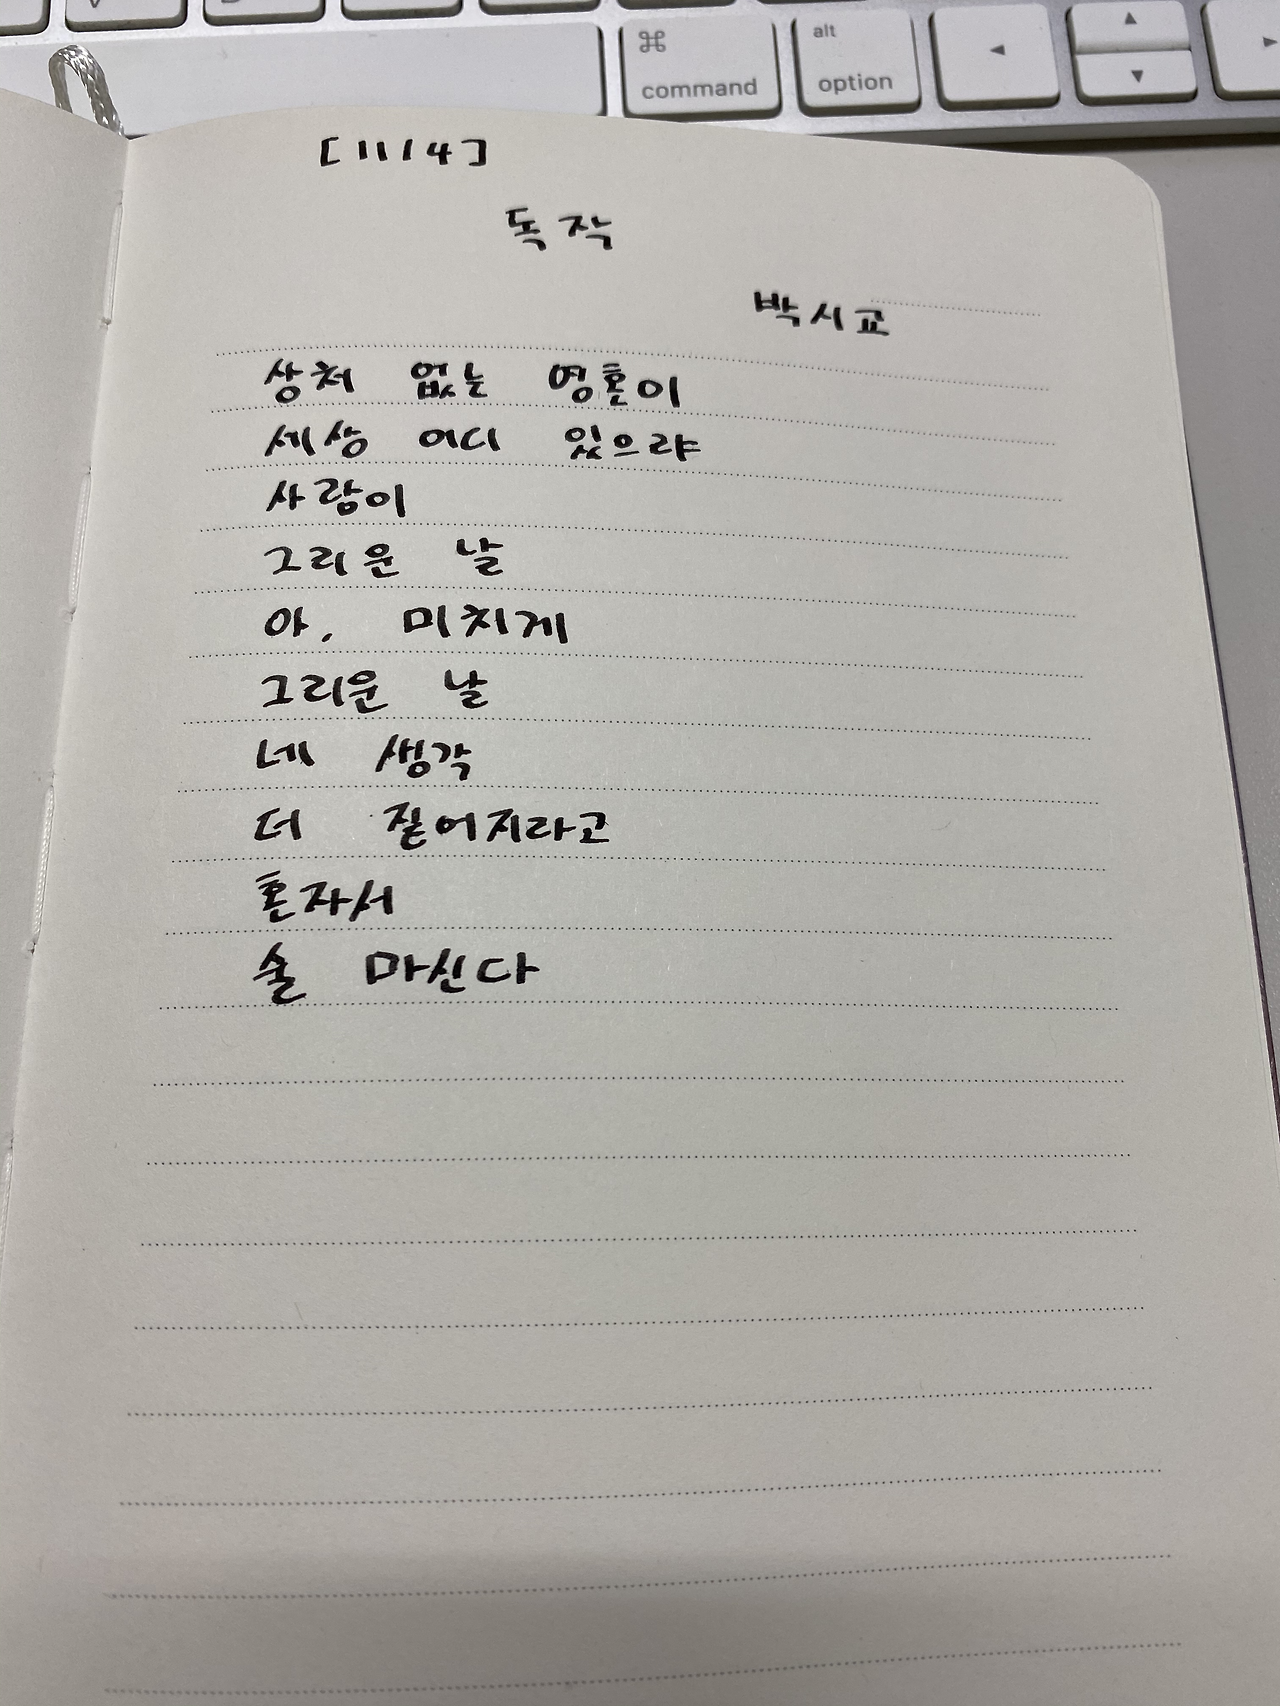 ⌘
command
alt
option
◀
▲
▼
▶
[11/4]
독작
박시교
상처 없는 영혼이
세상 어디 있으랴
사람이
그리운 날
아, 미치게
그리운 날
네 생각
더 짙어지라고
혼자서
술 마신다